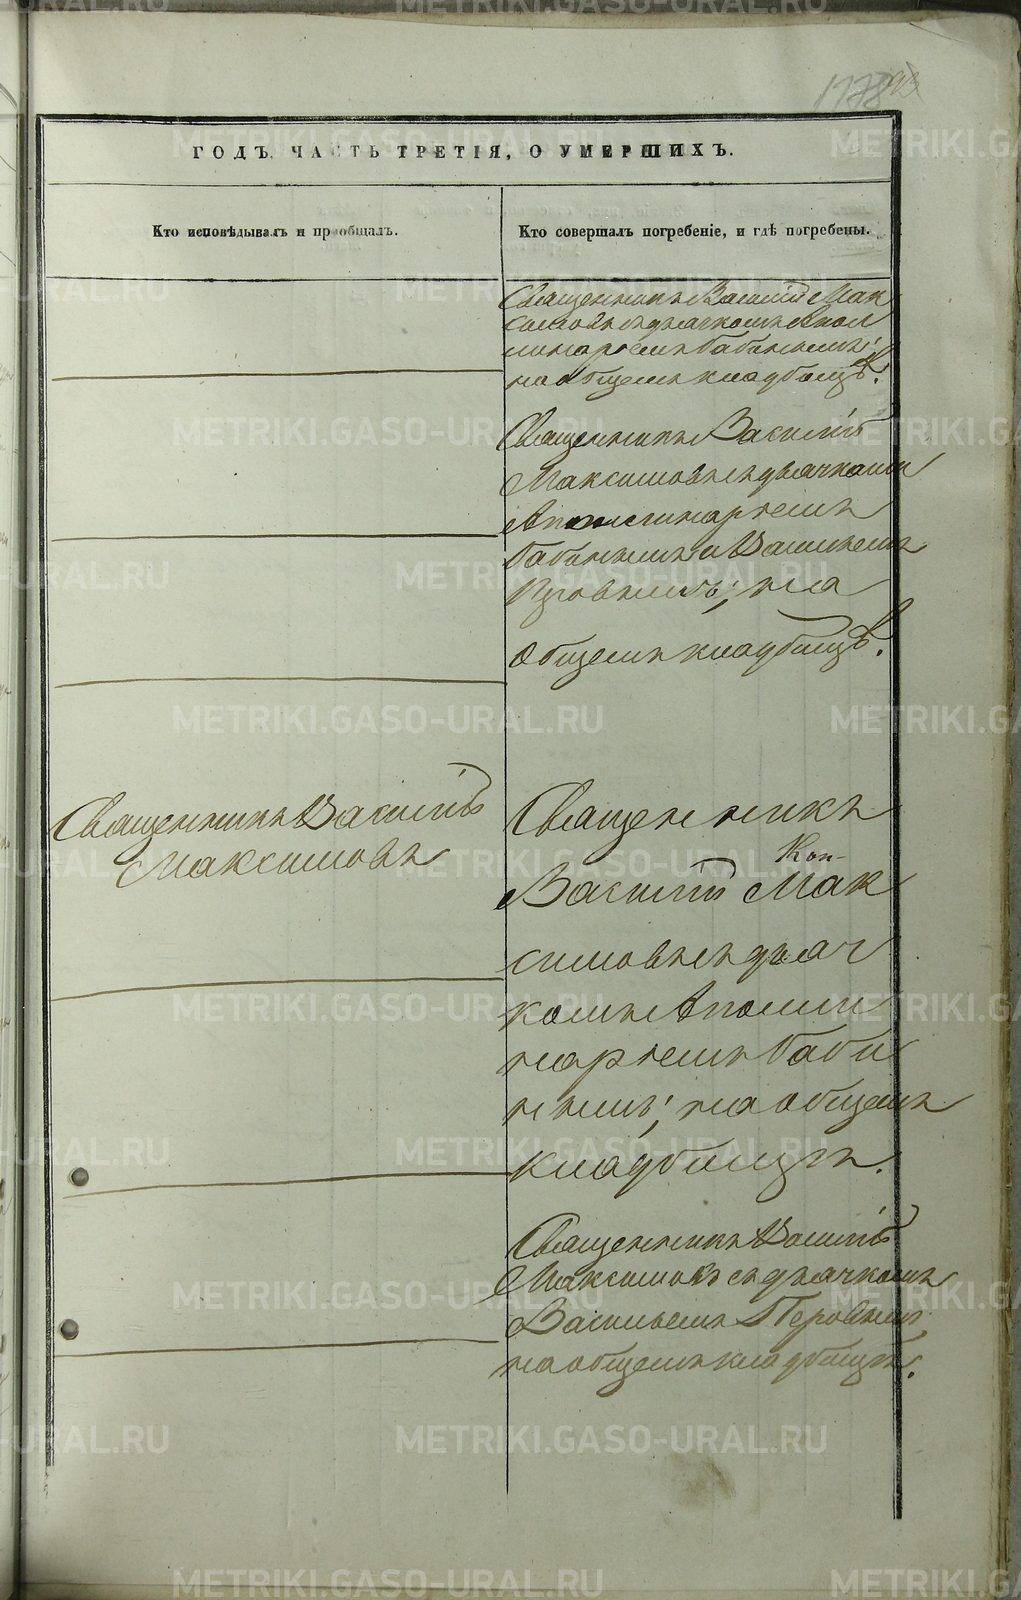 ГОДЪ, ЧАСТЬ ТРЕТІЯ, О УМЕРШИХЪ.
Кто исповѣдывалъ и пріобщалъ.
Кто совершалъ погребеніе, и гдѣ погребены.
Священникъ Василій Мак
симовъ съ дьячкомъ Апол
линаріемъ Бабинымъ;
на общемъ кладбищѣ.
Священникъ Василій
Максимовъ съ дьячками
Аполлинаріемъ
Бабинымъ и Васильемъ
на
общемъ кладбищѣ.
Священникъ Василій
Максимовъ
Священникъ
Василій Мак
симовъ съ дьяч
комъ Аполли
наріемъ Баби
нымъ; на общемъ
кладбищѣ.
Священникъ Василій
Максимовъ съ дьячкомъ
Васильемъ
на общемъ кладбищѣ.
METRIKI.GASO-URAL.RU